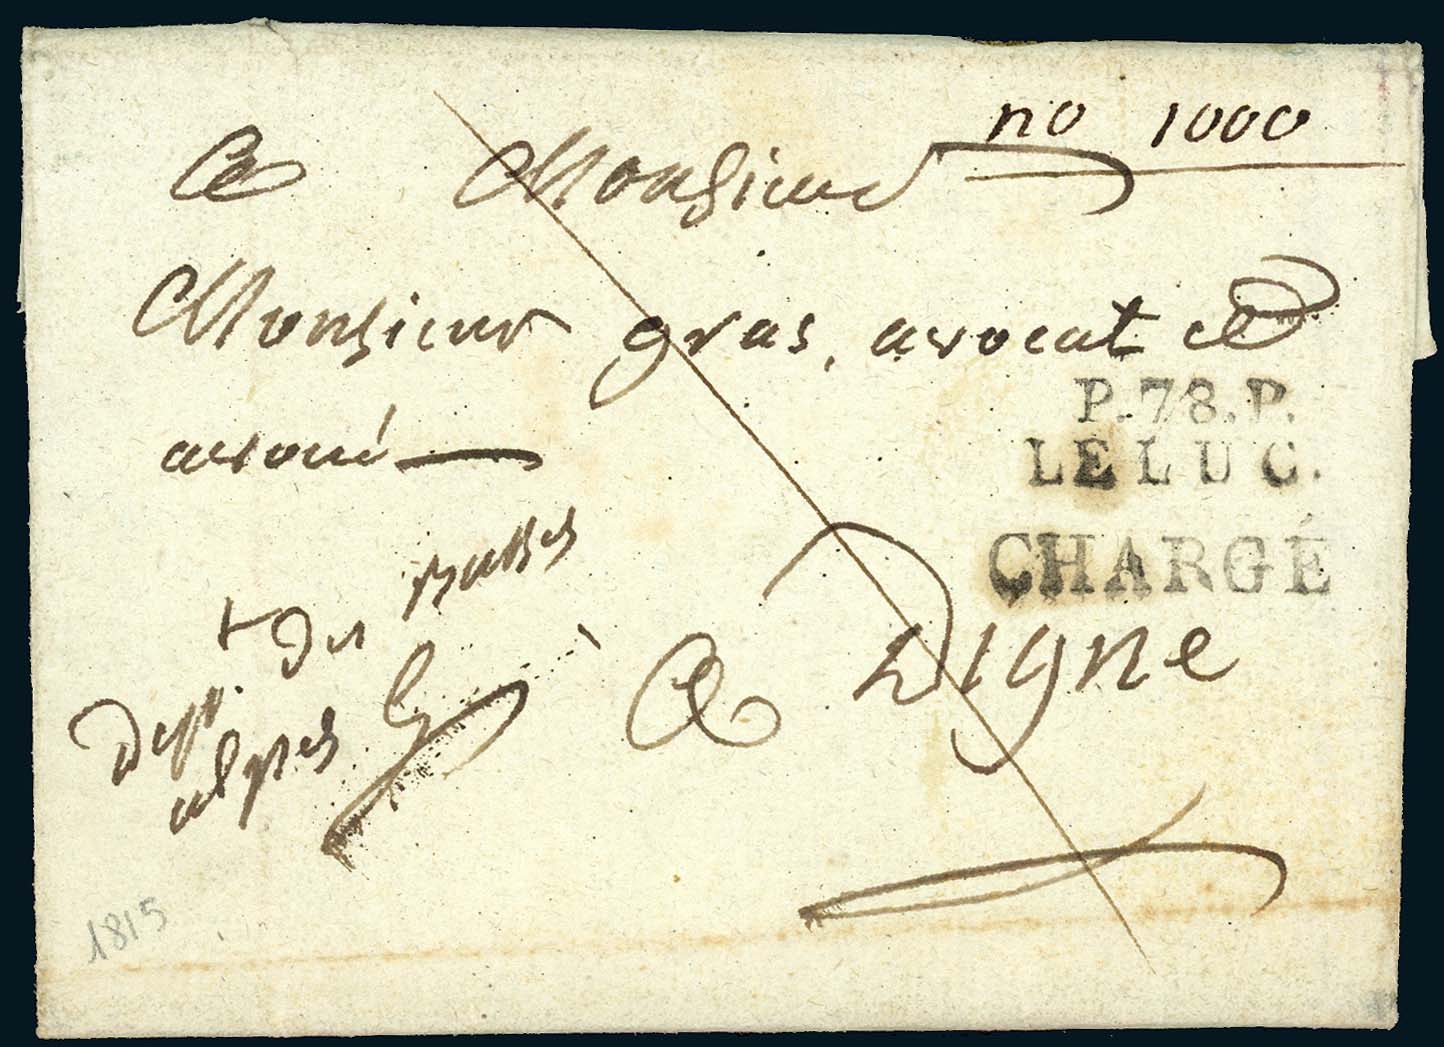 no 1000
A Monsieur
Monsieur gras, avocat et
avoué
P.78.P.
LE LUC.
CHARGÉ
Dept. des Basses
alpes
A Digne
1815